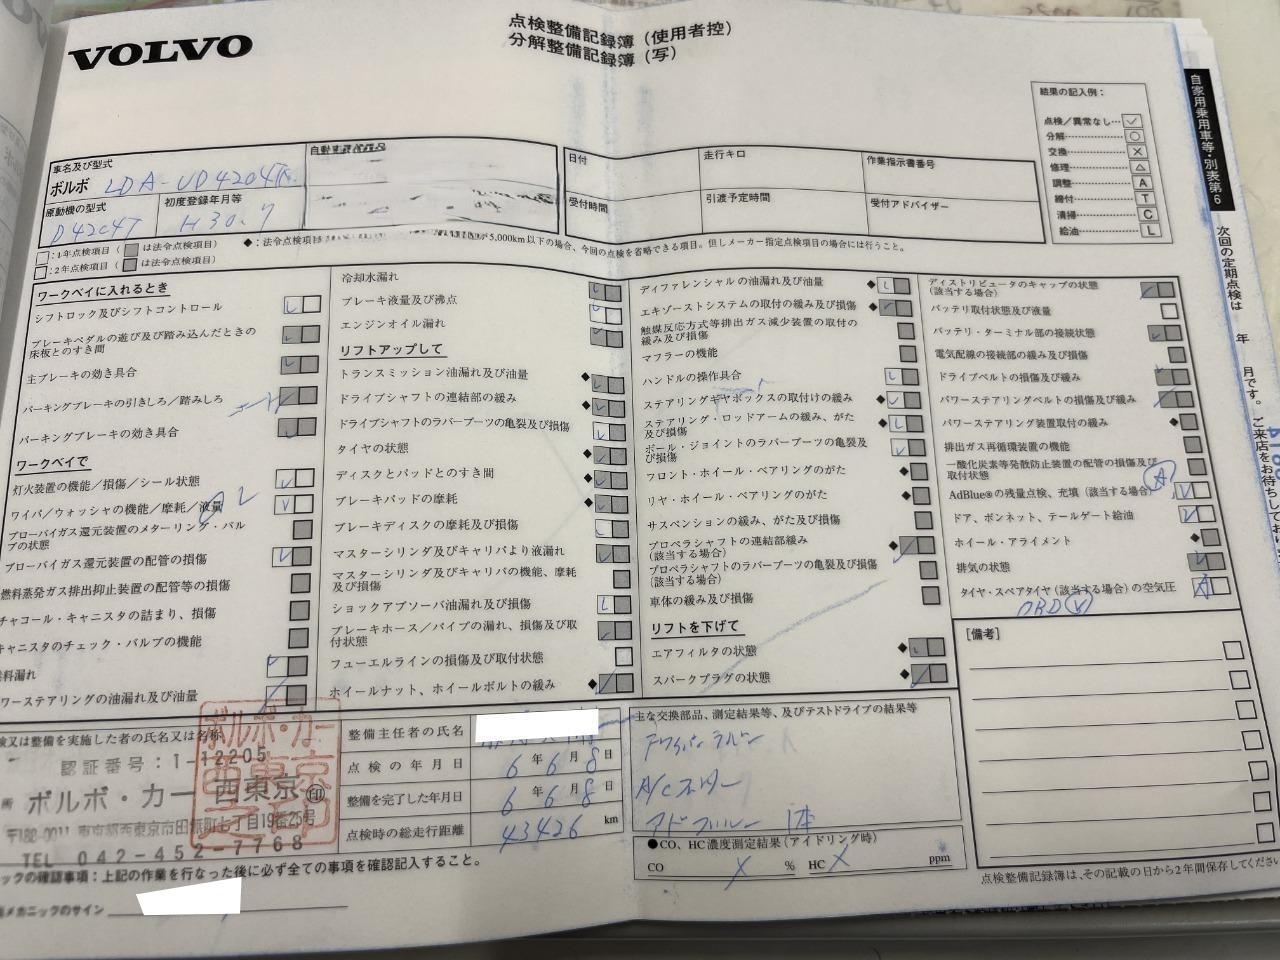 VOLVO
点検整備記録簿（使用者控）
分解整備記録簿（写）
結果の記入例：
点検／異常なし… ✓
分解… ○
交換… ×
修理… △
調整… A
締付… T
清掃… C
給油… L
自家用乗用車等・別表第6
次回の定期点検は 年 月です。ご来店をお待ちしてお
車名及び型式
ボルボ LDA-UD4204T
原動機の型式
D4204T
初度登録年月等
H30.7
日付
走行キロ
作業指示書番号
受付時間
引渡予定時間
受付アドバイザー
□：1年点検項目（ は法令点検項目）
□：2年点検項目（ は法令点検項目）
◆：法令点検項目 が5,000km以下の場合、今回の点検を省略できる項目。但しメーカー指定点検項目の場合には行うこと。
ワークベイに入れるとき
シフトロック及びシフトコントロール
ブレーキペダルの遊び及び踏み込んだときの
床板とのすき間
主ブレーキの効き具合
パーキングブレーキの引きしろ／踏みしろ
パーキングブレーキの効き具合
ワークベイで
灯火装置の機能／損傷／シール状態
ワイパ／ウォッシャの機能／摩耗／液量
ブローバイガス還元装置のメターリング・バル
ブの状態
ブローバイガス還元装置の配管の損傷
燃料蒸発ガス排出抑止装置の配管等の損傷
チャコール・キャニスタの詰まり、損傷
キャニスタのチェック・バルブの機能
料漏れ
ワーステアリングの油漏れ及び油量
冷却水漏れ
ブレーキ液量及び沸点
エンジンオイル漏れ
リフトアップして
トランスミッション油漏れ及び油量
ドライブシャフトの連結部の緩み
ドライブシャフトのラバーブーツの亀裂及び損傷
タイヤの状態
ディスクとパッドとのすき間
ブレーキパッドの摩耗
ブレーキディスクの摩耗及び損傷
マスターシリンダ及びキャリパより液漏れ
マスターシリンダ及びキャリパの機能、摩耗
及び損傷
ショックアブソーバ油漏れ及び損傷
ブレーキホース／パイプの漏れ、損傷及び取
付状態
フューエルラインの損傷及び取付状態
ホイールナット、ホイールボルトの緩み
ディファレンシャルの油漏れ及び油量
エキゾーストシステムの取付の緩み及び損傷
触媒反応方式等排出ガス減少装置の取付の
緩み及び損傷
マフラーの機能
ハンドルの操作具合
ステアリングギヤボックスの取付けの緩み
ステアリング・ロッドアームの緩み、がた
及び損傷
ボール・ジョイントのラバーブーツの亀裂及
び損傷
フロント・ホイール・ベアリングのがた
リヤ・ホイール・ベアリングのがた
サスペンションの緩み、がた及び損傷
プロペラシャフトの連結部緩み
（該当する場合）
プロペラシャフトのラバーブーツの亀裂及び損傷
（該当する場合）
車体の緩み及び損傷
リフトを下げて
エアフィルタの状態
スパークプラグの状態
ディストリビュータのキャップの状態
（該当する場合）
バッテリ取付状態及び液量
バッテリ・ターミナル部の接続状態
電気配線の接続部の緩み及び損傷
ドライブベルトの損傷及び緩み
パワーステアリングベルトの損傷及び緩み
パワーステアリング装置取付の緩み
排出ガス再循環装置の機能
一酸化炭素等発散防止装置の配管の損傷及び
取付状態
AdBlue®の残量点検、充填（該当する場合）
ドア、ボンネット、テールゲート給油
ホイール・アライメント
排気の状態
タイヤ・スペアタイヤ（該当する場合）の空気圧
OBD
［備考］
検又は整備を実施した者の氏名又は名称
認証番号：1-12205
ボルボ・カー 西東京 ㊞
〒188-0011 東京都西東京市田無町七丁目19番25号
TEL 042-452-7768
ックの確認事項：上記の作業を行なった後に必ず全ての事項を確認記入すること。
メカニックのサイン
整備主任者の氏名
点検の年月日 6年6月8日
整備を完了した年月日 6年6月8日
点検時の総走行距離 43426 km
主な交換部品、測定結果等、及びテストドライブの結果等
A/Cフィルター
アドブルー 1本
●CO、HC濃度測定結果（アイドリング時）
CO % HC ppm
点検整備記録簿は、その記載の日から2年間保存してください